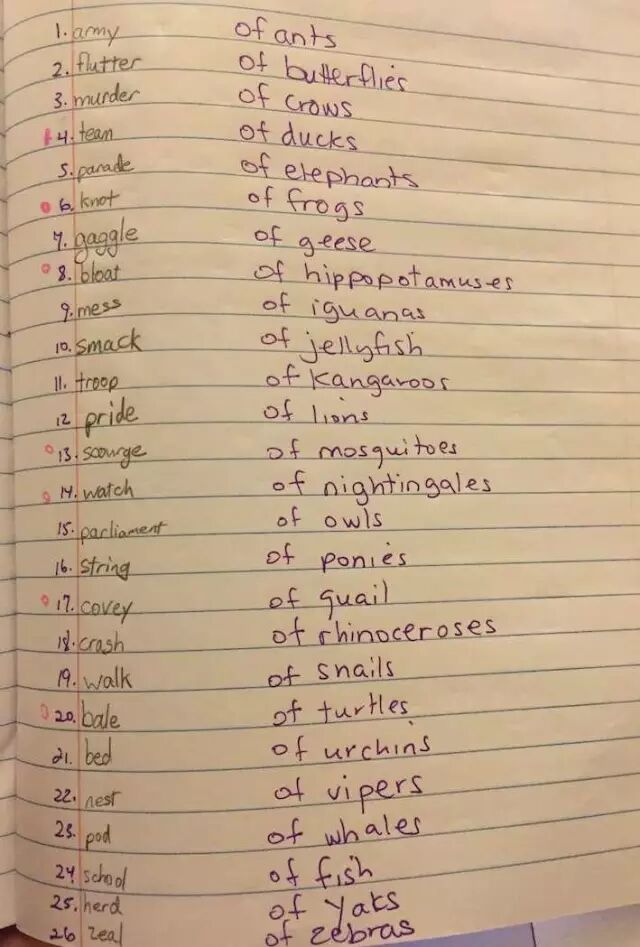 1. army of ants
2. flutter of butterflies
3. murder of crows
4. team of ducks
5. parade of elephants
6. knot of frogs
7. gaggle of geese
8. bloat of hippopotamuses
9. mess of iguanas
10. smack of jellyfish
11. troop of kangaroos
12 pride of lions
13. scourge of mosquitoes
14. watch of nightingales
15. parliament of owls
16. string of ponies
17. covey of quail
18. crash of rhinoceroses
19. walk of snails
20. bale of turtles
21. bed of urchins
22. nest of vipers
23. pod of whales
24 school of fish
25. herd of yaks
26 zeal of zebras